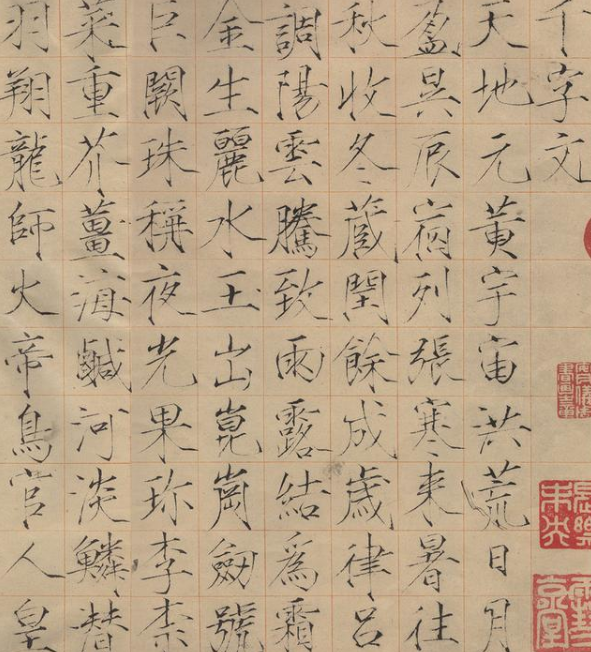 千字文
天地元黃宇宙洪荒日月
盈昃辰宿列張寒来暑往
秋收冬蔵閏餘成歳律呂
調陽雲騰致雨露結爲霜
金生麗水玉出崑崗劔號
巨闕珠稱夜光果珎李柰
菜重芥薑海鹹河淡鱗潜
羽翔龍師火帝鳥官人皇